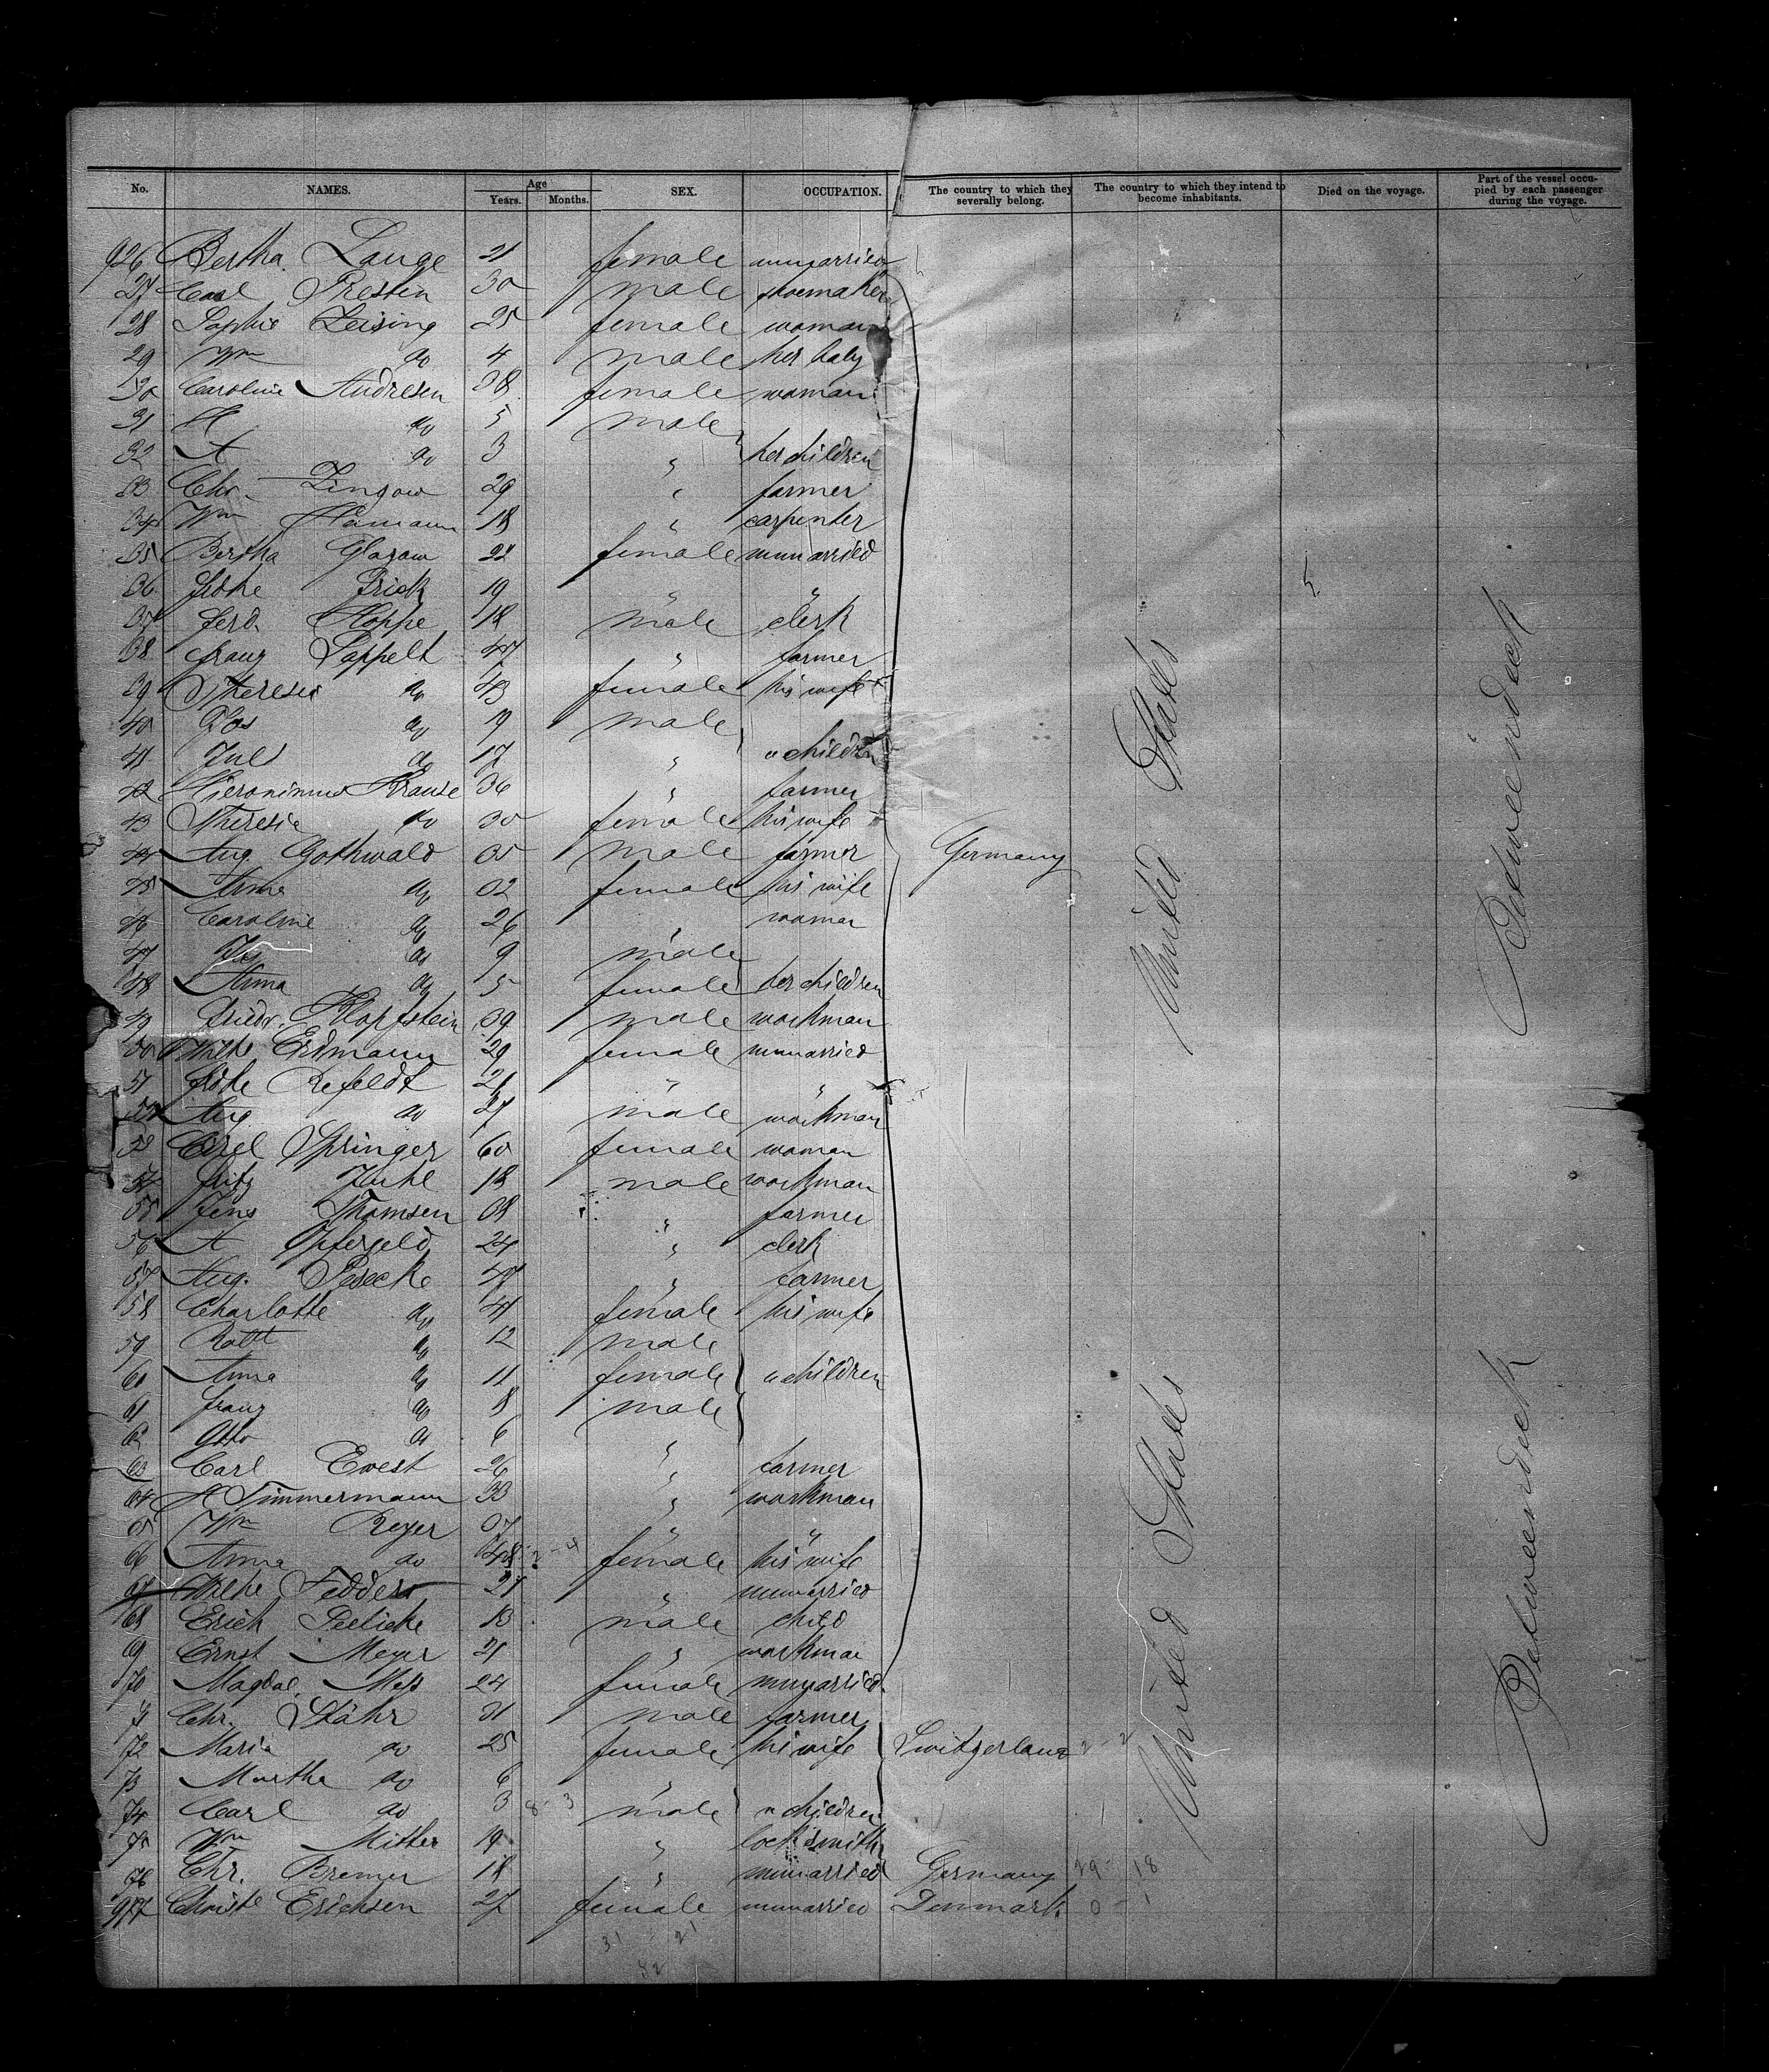 No. NAMES. Age Years. Months. SEX. OCCUPATION. The country to which they severally belong. The country to which they intend to become inhabitants. Died on the voyage. Part of the vessel occupied by each passenger during the voyage.
926 Bertha Lange 21 female unmarried
27 Carl Presten 30 male shoemaker
28 Sophie Leising 25 female woman
29 Wm do 4 male her baby
30 Caroline Andresen 38 female woman
31 H do 5 male
32 A do 3 " her children
33 Chr. Zingow 29 " farmer
34 Wm Hamann 18 " carpenter
35 Bertha Glasow 22 female unmarried
36 Frdke Frick 19 " "
37 Ferd. Hoppe 18 male clerk
38 Franz Pappelt 47 " farmer
39 Theresia do 43 female his wife
40 Jos do 19 male
41 Jul do 17 " " children
42 Hieronimus Krause 36 " farmer
43 Theresia do 30 female his wife
44 Aug. Gothwald 35 male farmer Germany
45 Anna do 32 female his wife
46 Caroline do 26 " woman
47 Jos do 9 male
48 Anna do 5 female her children
49 Friedr. Klopfstein 39 male workman
50 Wilhe Erdmann 29 female unmarried
51 Frdke Refeldt 21 " "
52 Aug do 27 male workman
53 Carel Springer 60 female woman
54 Fritz Juhl 18 male workman
55 Jens Thomsen 38 " farmer
56 A Opfergeld 24 " clerk
57 Aug. Pesecke 47 " farmer
58 Charlotte do 41 female his wife
59 Robt do 12 male
60 Anna do 11 female " children
61 Franz do 8 male
62 Otto do 6 "
63 Carl Ewest 26 " farmer
64 H Timmermann 33 " workman
65 Wm Reyer 37 " "
66 Anna do 48 female his wife
67 Wilhe Fedders 21 " unmarried
68 Erich Peelicke 13 male child
69 Ernst Meyer 21 " workman
70 Magdal. Mess 24 female unmarried
71 Chr. Stähr 31 male farmer
72 Maria do 25 female his wife Switzerland 2-2
73 Martha do 6 "
74 Carl do 3 male " children
75 Wm Mitter 19 " locksmith
76 Chr. Bremer 18 " unmarried Germany 29-18
977 Christe Erichsen 27 female unmarried Denmark 0-1
31 - 21
52
United States
United States
Betweendeck
Betweendeck